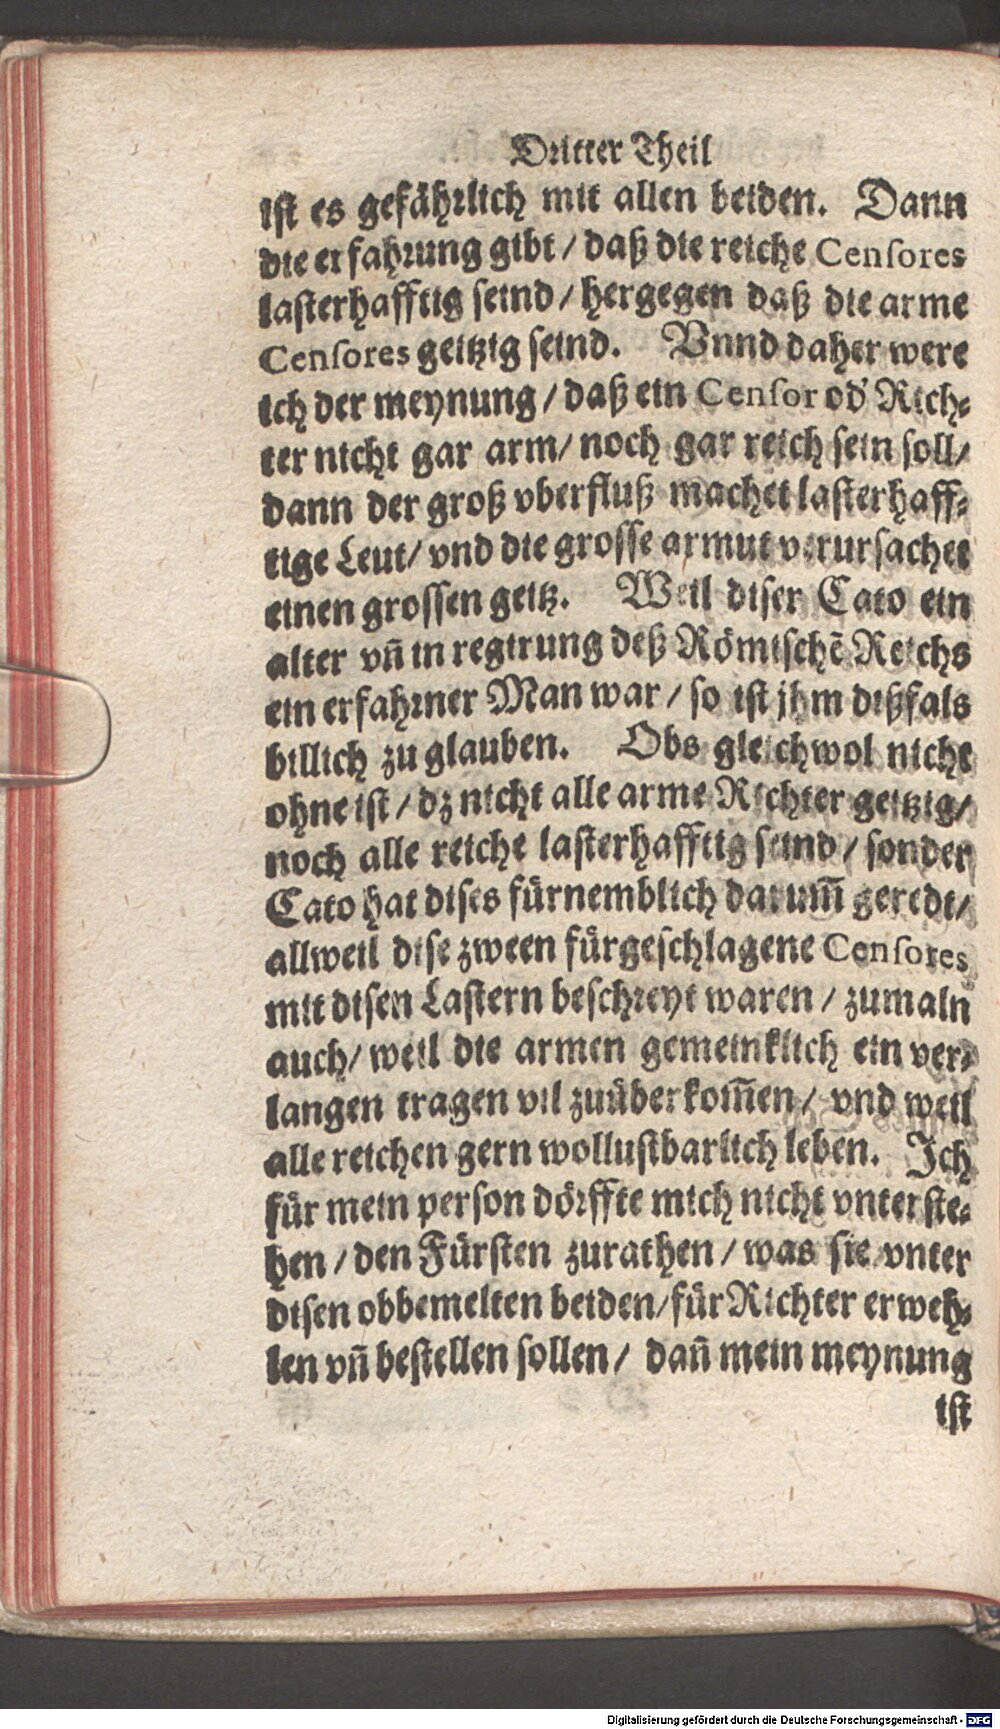 Dritter Theil
ist es gefährlich mit allen beiden. Dann
die erfahrung gibt / daß die reiche Censores
lasterhafftig seind / hergegen daß die arme
Censores geitzig seind. Vnnd daher were
ich der meynung / daß ein Censor od' Rich-
ter nicht gar arm / noch gar reich sein soll /
dann der groß vberfluß machet lasterhaff-
tige Leut / vnd die grosse armut verursachet
einen grossen geitz. Weil diser Cato ein
alter vñ in regirung deß Römischē Reichs
ein erfahrner Man war / so ist jhm dißfals
billich zu glauben. Obs gleichwol nicht
ohne ist / dz nicht alle arme Richter geitzig /
noch alle reiche lasterhafftig seind / sonder
Cato hat dises fürnemblich darum̃ geredt /
allweil dise zween fürgeschlagene Censores
mit disen Lastern beschreyt waren / zumaln
auch / weil die armen gemeinklich ein ver-
langen tragen vil zuüberkom̃en / vnd weil
alle reichen gern wollustbarlich leben. Ich
für mein person dörffte mich nicht vnterste-
hen / den Fürsten zurathen / was sie vnter
disen obbemelten beiden / für Richter erweh-
len vñ bestellen sollen / dañ mein meynung
ist
Digitalisierung gefördert durch die Deutsche Forschungsgemeinschaft - DFG